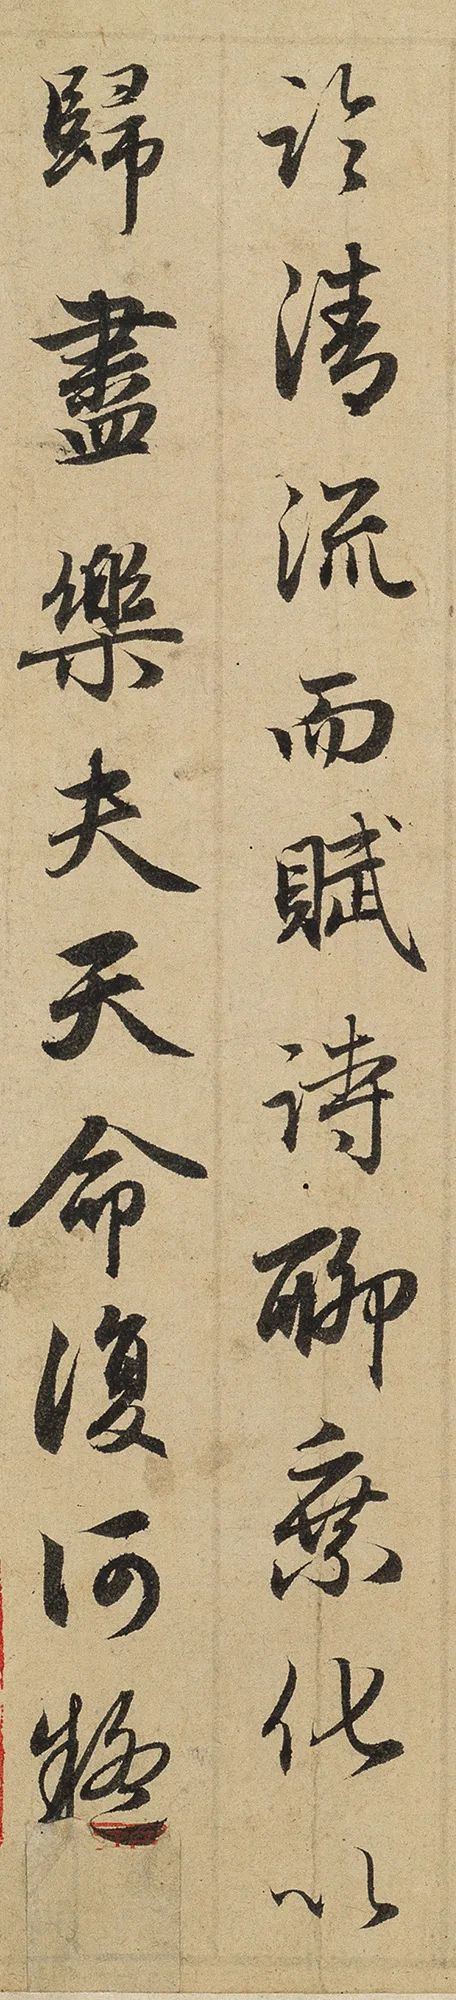 詅清流而賦詩聊乗化以
歸盡樂夫天命復何疑